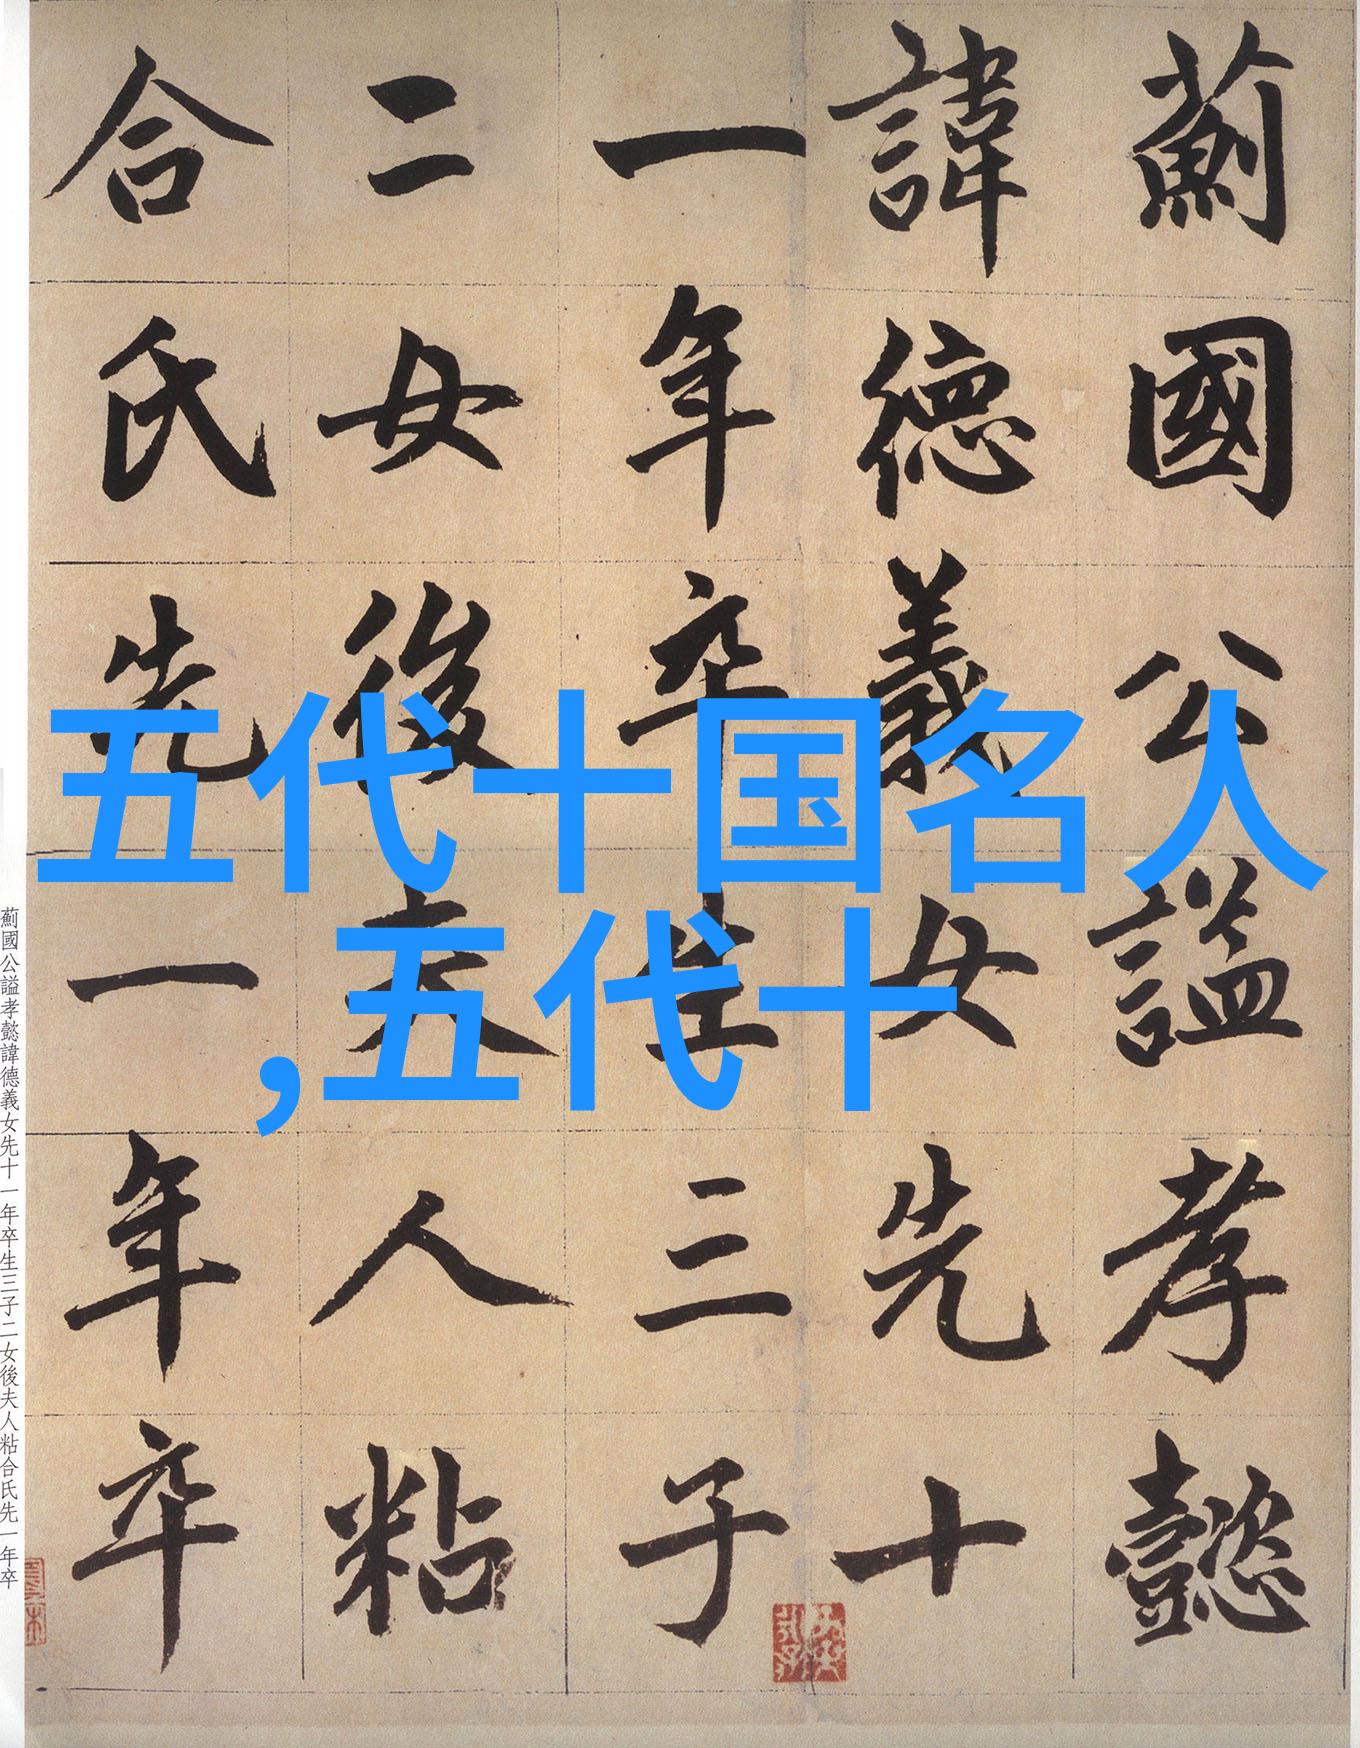 薊國公謚孝懿
諱德義女先十
一年卒生三子
二女後夫人粘
合氏先一年卒
薊國公謚孝懿諱德義女先十一年卒生三子二女後夫人粘合氏先一年卒
五代十国名人
,五代十